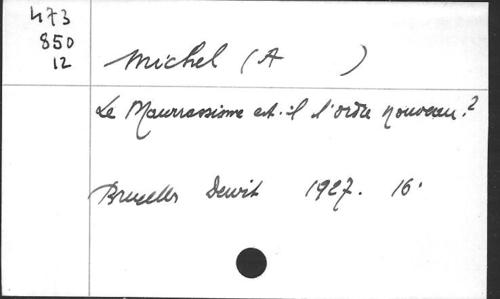 473
850
12
Michel (A )
Le Maurrassisme est-il l'ordre nouveau?
Bruxelles Dewit 1927. 16°